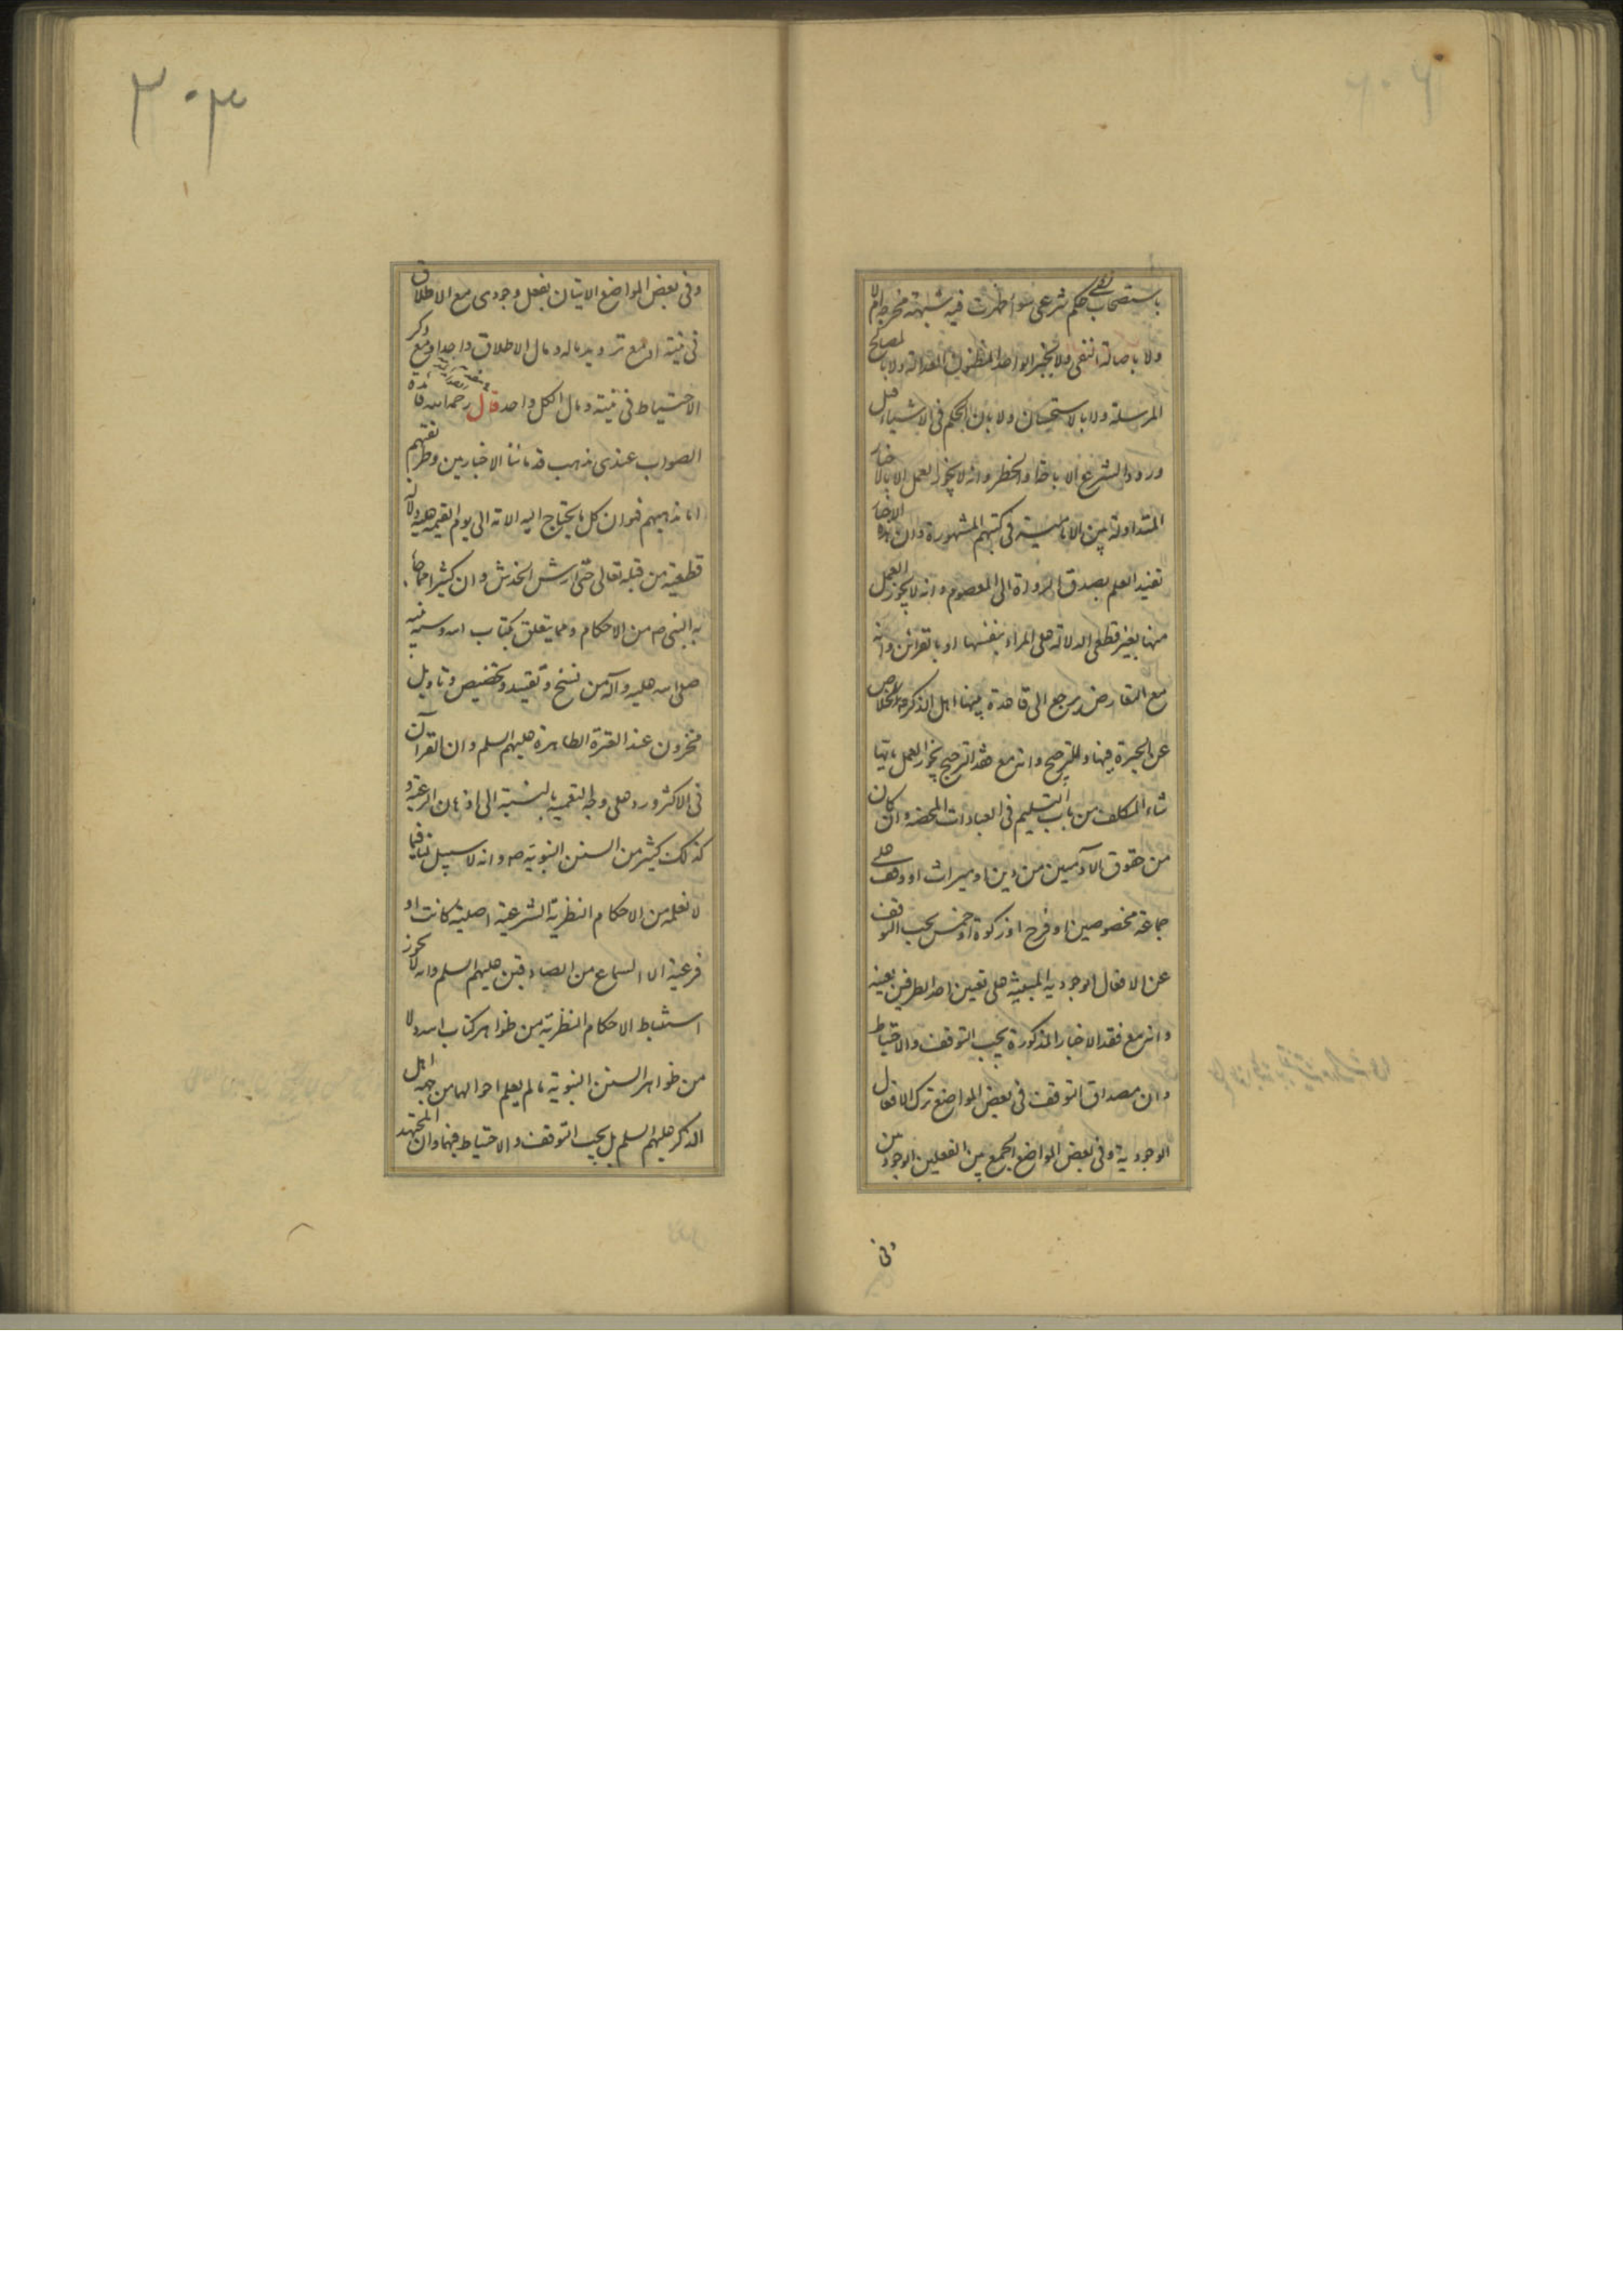 باستصحاب حكم شرعى سواء ظهرت فيه شبهة مخرجة ام لا
ولا باصالة النفى ولا بخبر الواحد المظنون العدالة ولا بالمصالح
المرسلة ولا بالاستحسان ولا بان الحكم فى الاشياء قبل
ورود الشرع الاباحة او الحظر وانه لا يجوز العمل الا بالاخبار
المتداولة بين الامامية فى كتبهم المشهورة وان هذه الاخبار
تفيد العلم بصدق الرواة الى المعصوم وانه لا يجوز العمل
منها بغير قطعى الدلالة على المراد بنفسها او بالقرائن وانه
مع التعارض يرجع الى قاعدة بينها اهل الذكر للخلاص
عن الحيرة فيها والترجيح وانه مع فقد الترجيح يجوز العمل بايها
شاء المكلف من باب التسليم فى العبادات المحضة وان كان
من حقوق الآدميين من دين او ميراث او وقف على
جماعة مخصوصين او فرج او زكوة او خمس يجب التوقف
عن الافعال الوجودية المبنية على تعيين احد الطرفين بعينه
وانه مع فقد الاخبار المذكورة يجب التوقف والاحتياط
وان مصداق التوقف فى بعض المواضع ترك الافعال
الوجودية وفى بعض المواضع الجمع بين الفعلين الوجوديين
وفى
٣٠٣
وفى بعض المواضع الاتيان بفعل وجودى مع الاطلاق
فى نيته او مع ترديد ماله ومال الاطلاق واحد او مع ذكر
الاحتياط فى نيته ومال الكل واحد قال رحمه الله فائدة
الصواب عندى مذهب قدمائنا الاخباريين وطريقتهم
اما مذهبهم فهو ان كل ما يحتاج اليه الامة الى يوم القيمة عليه دلالة
قطعية من قبله تعالى حتى ارش الخدش وان كثيرا مما جاء
به النبى ص من الاحكام ومما يتعلق بكتاب الله وسنة نبيه
صلى الله عليه وآله من نسخ وتقييد وتخصيص وتاويل
مخزون عند العترة الطاهرة عليهم السلم وان القرآن
فى الاكثر ورد على وجه التعمية بالنسبة الى اذهان الرعية و
كذلك كثير من السنن النبوية ص وانه لا سبيل لنا فيما
لا نعلمه من الاحكام النظرية الشرعية اصلية كانت او
فرعية الا السماع من الصادقين عليهم السلم وانه لا يجوز
استنباط الاحكام النظرية من ظواهر كتاب الله ولا
من ظواهر السنن النبوية ما لم يعلم احوالهما من جهة اهل
الذكر عليهم السلم بل يجب التوقف والاحتياط فيهما وان المجتهد